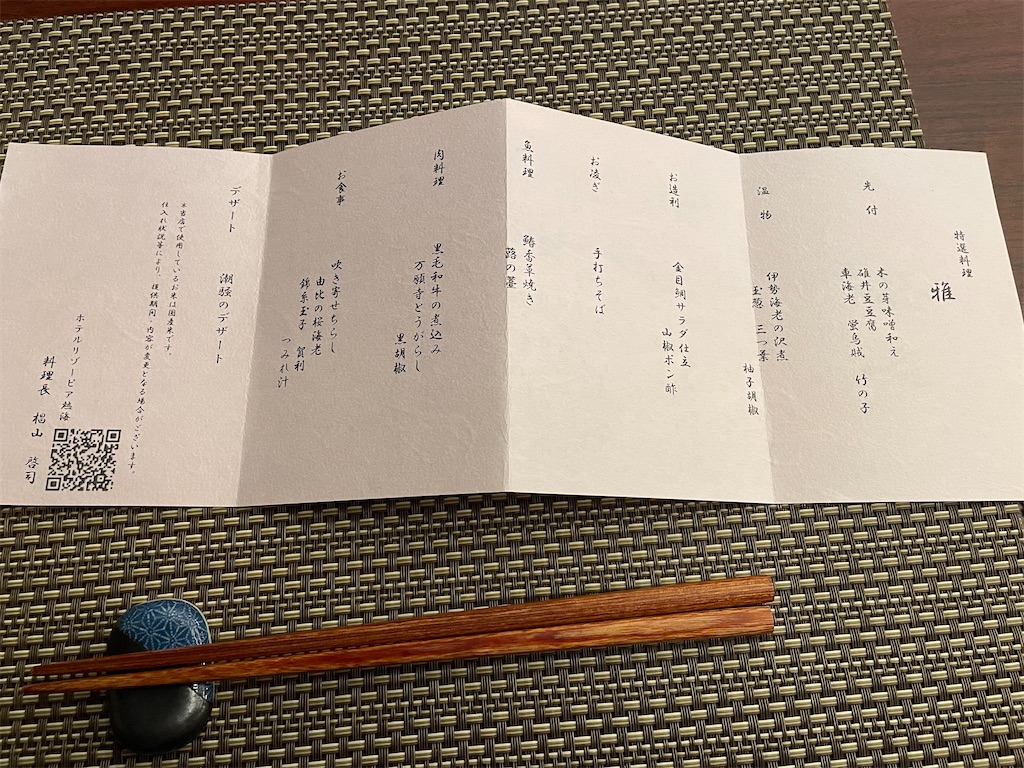 特選料理
雅
先付
木の芽味噌和え
碓井豆腐 竹の子
車海老 蛍烏賊
温物
伊勢海老の沢煮
玉葱 三つ葉
柚子胡椒
お造利
金目鯛サラダ仕立
山椒ポン酢
お凌ぎ
手打ちそば
魚料理
鰆香草焼き
蕗の薹
肉料理
黒毛和牛の煮込み
万願寺とうがらし
黒胡椒
お食事
吹き寄せちらし
由比の桜海老
錦糸玉子 賀利
つみれ汁
デザート
潮騒のデザート
*当店で使用しているお米は国産米です。
仕入れ状況等により、提供期間・内容が変更となる場合がございます。
ホテルリゾーピア熱海
料理長 椙山 啓司